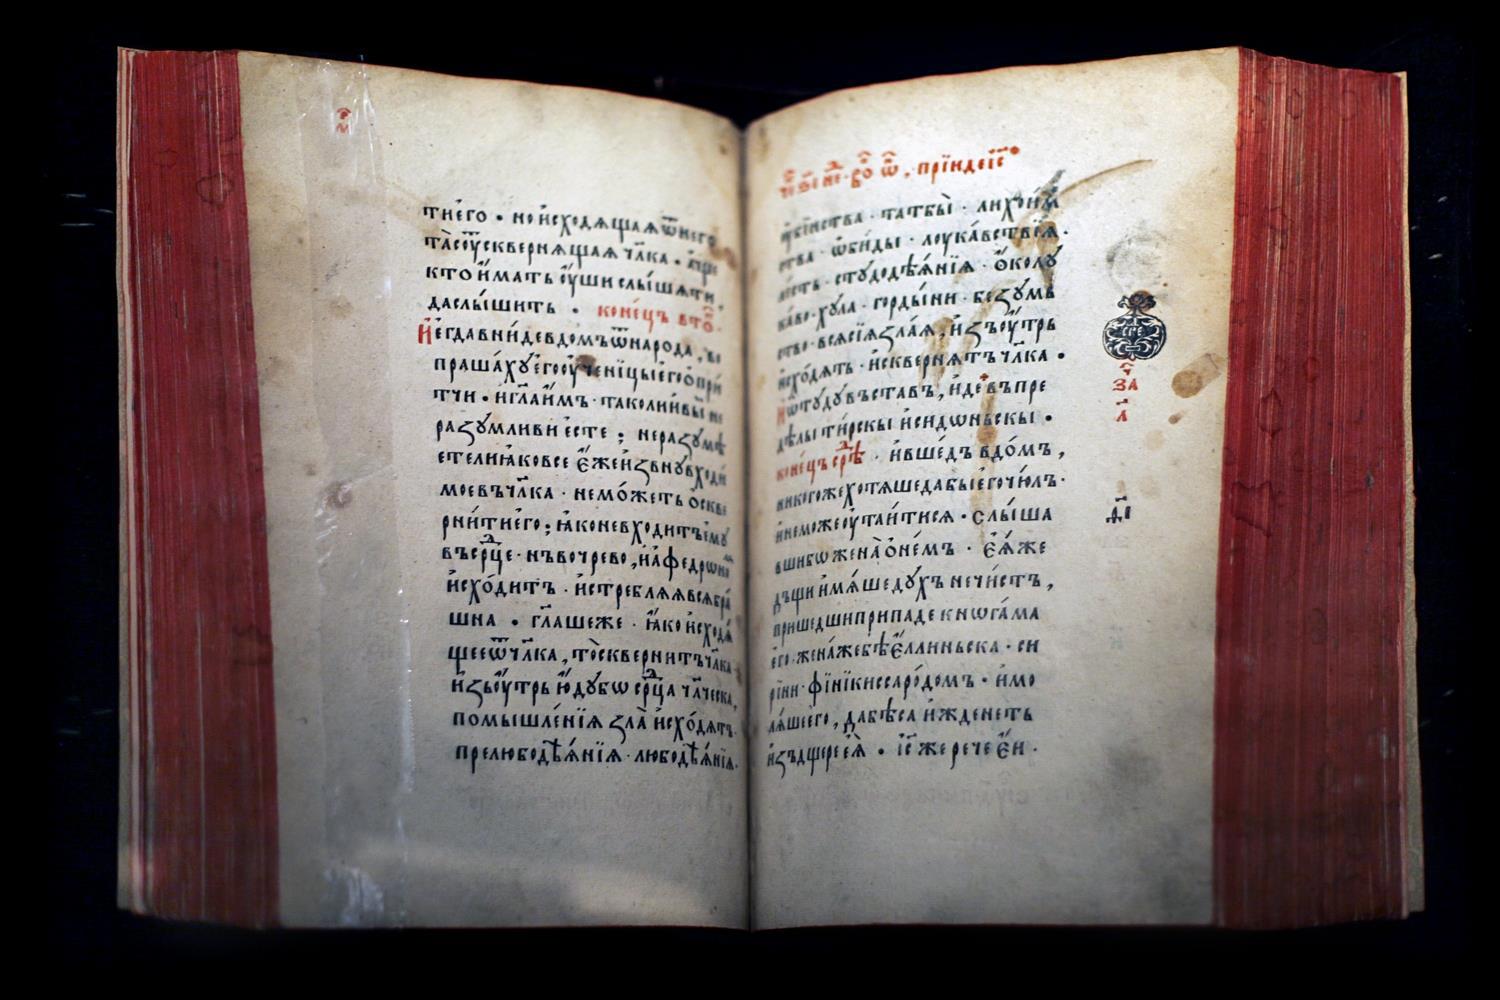 тїего · но и҆сходѧщаѧ ѿ него
та сꙋ҆ть сквернѧщаѧ чл҃ка · а҆ще
кто и҆мать ᲂу҆ши слы́шати
да слы́шить · коне́цъ вто҇р
И҆ егда вни́де в домъ ѿ народа, во
праша́хꙋ е҆го ᲂу҆ченїцы е҆го ѡ҆ при
тчи · и҆ гл҃а и҆мъ · тако ли и҆ вы̀ не
разꙋмливи є҆сте ; не разꙋмѣ
ете ли ꙗ҆ко все є҆́же и҆звнꙋ входи
мое въ чл҃ка · не мо́жеть ѡ҆скве
рни́ти е҆го ; ꙗ҆ко не входитъ е҆мꙋ̀
въ ср҃дце · нъ во чрево, и҆ а҆федрѡно
и҆схо́дитъ · и҆стреблѧѧ всѧ бра́
шна · гл҃аше же · ꙗ҆́ко и҆сходѧ́
щее ѿ чл҃ка, то̀ сквернитъ чл҃ка
и҆зъᲂу҆трь ю҆дꙋ бѡ ср҃дца чл҃ческа,
помышле́нїѧ зла̀ и҆схо́дѧтъ ·
прелюбодѣѧ́нїѧ · любодѣѧ́нїѧ ·
прїиде і҆с҃
ᲂу҆бі́иства · татбы̀ · лихои́м
ства · ѡ҆би́ды · лоука́вствїѧ ·
ле́сть · стꙋдодѣѧ́нїѧ · ѻ҆́ко лꙋ
ка́во · хꙋла · горды́ни · безꙋмь
ство · всѧ сїѧ ѕла́ѧ, и҆зъᲂу҆трь
и҆схо́дѧть · и҆ сквернѧ́тъ чл҃ка ·
И҆ ѿтꙋдꙋ въставъ, и҆́де въ пре
дѣ́лы ти́рскы и҆ сидѡ́ньскы ·
коне́цъ срⷣѣ · и҆ вше́дъ в до́мъ,
никого же хотѧше да бы е҆го чю́лъ ·
и҆ не може ᲂу҆таи́тисѧ · слы́ша
вши бѡ жена̀ ѻ҆ не́мъ · є҆ѧ́же
дъщи и҆мѧ́ше дꙋхъ нечи́стъ,
пришедши припаде к нѡга́ма
е҆го · жена́ же бѣ є҆́ллиньска · си
рі́ни · фїнїкисса ро́домъ · и҆ мо
лѧ́ше е҆го, да бѣ́са и҆жденеть
и҆з дъщере е҆ѧ̀ · і҆с҃ же рече є҆́и ·
сре
за
л҃
д҃і